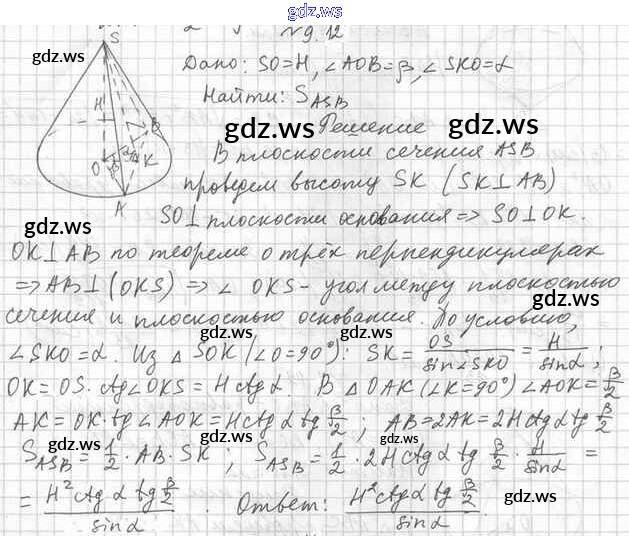 gdz.ws
№9.12
Дано: SO=H, ∠AOB=β, ∠SKO=α
gdz.ws
Найти: S_ASB
gdz.ws gdz.ws
Решение
S
H
O
β
α
K
B
A
В плоскости сечения ASB
проведем высоту SK (SK⊥AB)
gdz.ws
SO⊥ плоскости основания => SO⊥OK.
OK⊥AB по теореме о трёх перпендикулярах
=> AB⊥(OKS) => ∠OKS - угол между плоскостью
gdz.ws
сечения и плоскостью основания. По условию,
gdz.ws gdz.ws
∠SKO=α. Из △SOK (∠O=90°): SK = OS/sin∠SKO = H/sinα;
OK=OS·ctg∠OKS = Hctgα. В △OAK (∠K=90°) ∠AOK=β/2
gdz.ws
AK=OK·tg∠AOK=Hctgα tg β/2; AB=2AK=2Hctgα tg β/2
gdz.ws gdz.ws
S_ASB=1/2·AB·SK; S_ASB=1/2·2Hctgα tg β/2·H/sinα =
gdz.ws gdz.ws
= H²ctgα tg β/2 / sinα. Ответ: H²ctgα tg β/2 / sinα.